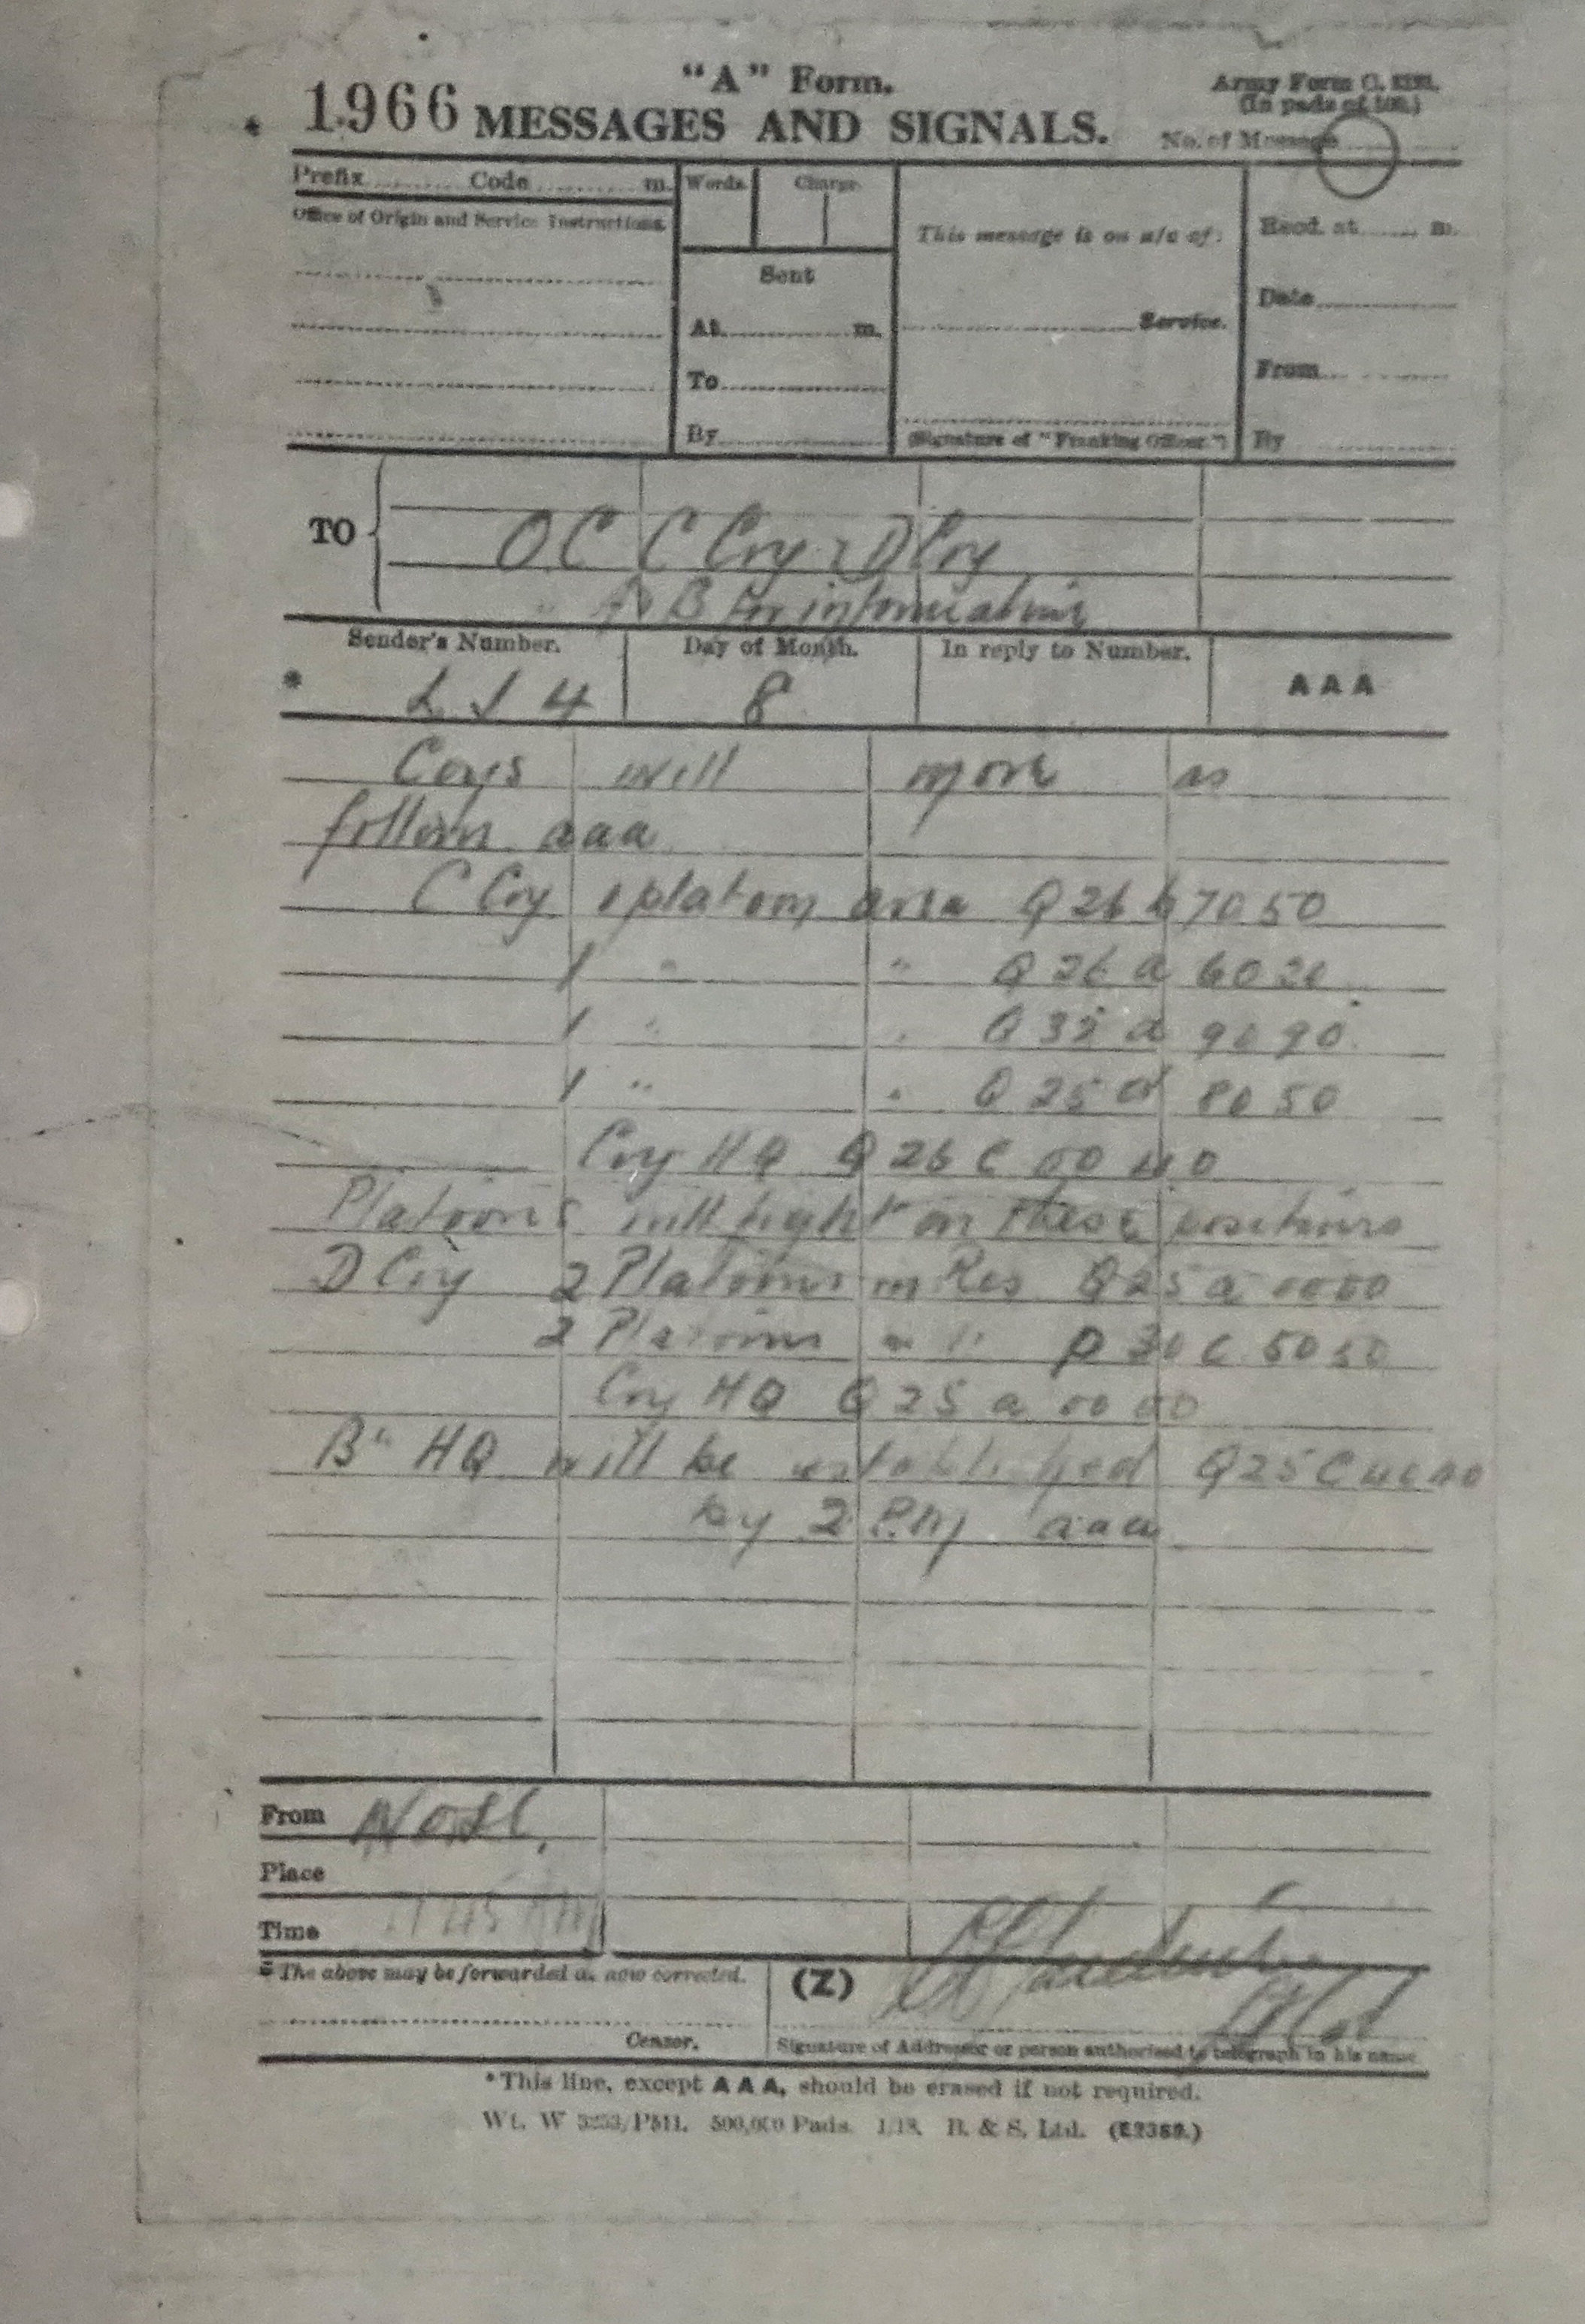 "A" Form.
Army Form C.
1966 MESSAGES AND SIGNALS.
(In pads of 100.)
No. of Message
Prefix Code m. Words. Charge.
Office of Origin and Service Instructions.
This message is on a/c of:
Recd. at m.
Sent
Date
At m.
Service.
To
From
By
(Signature of "Franking Officer.")
By
TO
O C C Coy & D Coy
" A & B for information
Sender's Number. Day of Month. In reply to Number.
* L J 4 8 AAA
Coys will move as
follows aaa
C Coy 1 platoon area Q 26 b 70 50
1 " " Q 26 a 60 20
1 " " Q 32 a 90 90
1 " " Q 25 d 80 50
Coy HQ Q 26 C 00 40
Platoons will fight on these positions
D Coy 2 Platoons in Res Q 25 a 00 00
2 Platoons " " P 30 c 50 50
Coy HQ Q 25 a 00 00
Bn HQ will be established Q 25 C
by 2 P.M. aaa
From
Place
Time
* The above may be forwarded as now corrected. (Z)
Censor. Signature of Addressor or person authorised to telegraph in his name
*This line, except AAA, should be erased if not required.
Wt. W 3253/P511. 500,000 Pads. 1/18. B. & S. Ltd. (E2389.)